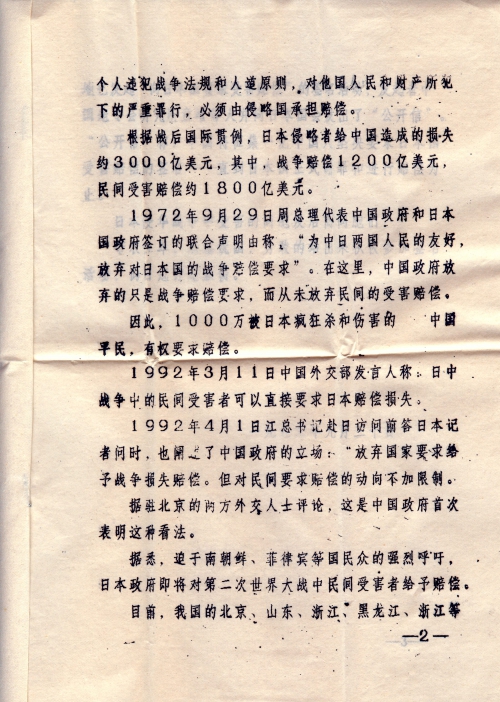 个人违犯战争法规和人道原则，对他国人民和财产所犯
下的严重罪行，必须由侵略国承担赔偿。
根据战后国际贯例，日本侵略者给中国造成的损失
约3000亿美元，其中，战争赔偿1200亿美元，
民间受害赔偿约1800亿美元。
1972年9月29日周总理代表中国政府和日本
国政府签订的联合声明由称、“为中日两国人民的友好，
放弃对日本国的战争赔偿要求”。在这里，中国政府放
弃的只是战争赔偿要求，而从未放弃民间的受害赔偿。
因此，1000万被日本疯狂杀和伤害的 中国
平民，有权要求赔偿。
1992年3月11日中国外交部发言人称：日中
战争中的民间受害者可以直接要求日本赔偿损失。
1992年4月1日江总书记赴日访问前答日本记
者问时，也阐述了中国政府的立场：“放弃国家要求给
予战争损失赔偿。但对民间要求赔偿的动向不加限制。
据驻北京的西方外交人士评论，这是中国政府首次
表明这种看法。
据悉，迫于南朝鲜、菲律宾等国民众的强烈呼吁，
日本政府即将对第二次世界大战中民间受害者给予赔偿。
目前，我国的北京、山东、浙江、黑龙江、浙江等
—2—